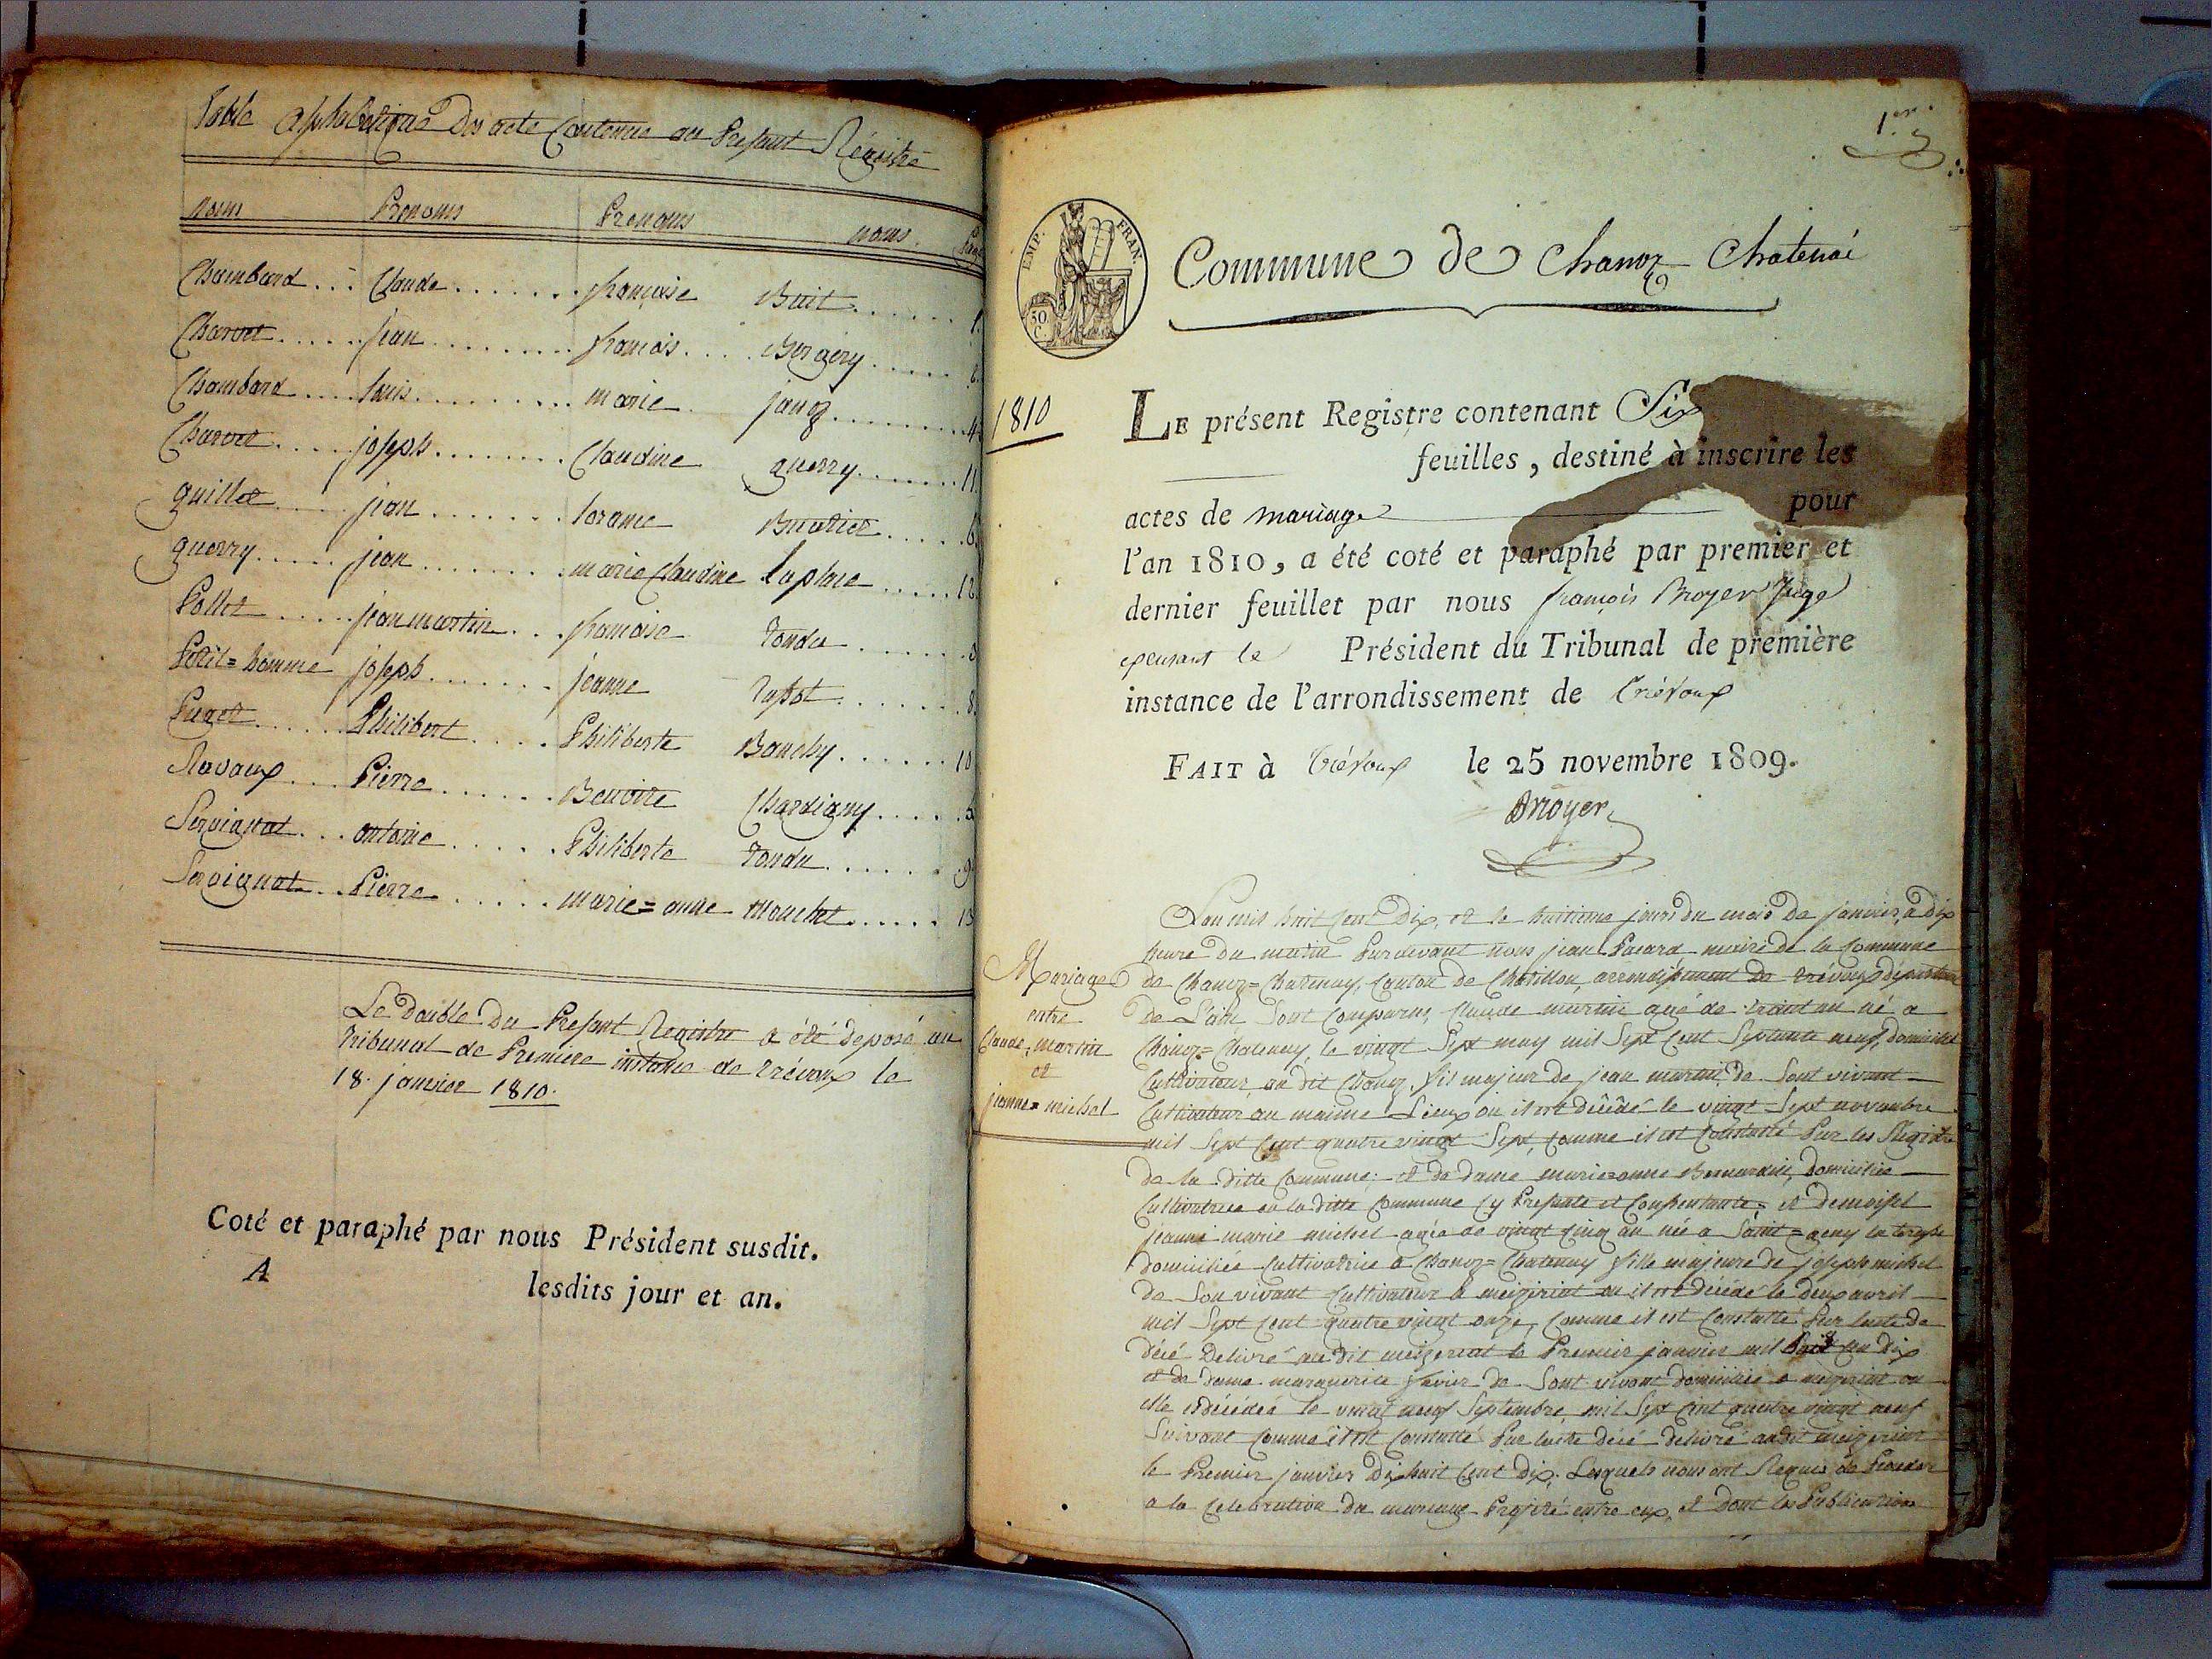 Table alphabetique des acte Contenus au Present Régistre
noms Prenoms Prenoms noms
Chambard Claude françoise Buit 1
Charvet jean francois Bergery 2
Chambard louis marie janoz 4
Charvet joseph Claudine guerry 11
guillet jean laranie
guerry jean marie Claudine laplace 12
Pollet jean martin francoise Tondu 3
Petit=homme joseph jeanne 8
Puget Philibert Philiberte Bouchy 10
Ravaux Pierre Benoite Chardigny 5
Servignat antoine Philiberte Tondu 9
Servignat Pierre marie=anne Mouchet 13
Le Double Du Present Registre a été deposé au
Tribunal de Premiere instance de trévoux le
18. janvier 1810.
Coté et paraphé par nous Président susdit.
A lesdits jour et an.
1.er
EMP. FRAN.
50 C.
Commune de Chanoz Chatenai
1810
LE présent Registre contenant Six
feuilles, destiné à inscrire les
actes de mariage pour
l'an 1810, a été coté et paraphé par premier et
dernier feuillet par nous françois Moyer Juge
exerçant le Président du Tribunal de première
instance de l'arrondissement de Trévoux
FAIT à Trévoux le 25 novembre 1809.
Moyer
Mariage
entre
Claude martin
et
jeanne michel
L'an mil huit cent Dix, et le huitieme jour du mois de janvier, a dix
heure du matin Pardevant nous jean Pacard maire de la Commune
de Chanoz=Chatenay, Canton de Chatillon, arrondissement de trévoux département
de L'ain Sont Comparus, Claude martin agé de trant un né a
Chanoz=Chatenay, le vingt Sept may mil Sept Cent Septante neuf, domicilié
Cultivateur au dit Chanoz, fils majeur de jean martin de Sont vivant
Cultivateur au maime Lieux ou il est décédé le vingt Sept novembre
mil Sept Cent quatre vingt Sept, Comme il est Constatté Sur les Registre
de la ditte Commune: et de dame marie=anne Bernardin, domiciliée
Cultivatrice en la ditte Commune Cy Presente et Consentante= et demoisel
jeanne marie michel agée de vingt Cinq an née a Saint=
domiciliée Cultivatrice a Chanoz=Chatenay fille majeure de joseph michel
de Son vivant Cultivateur a meizeriat ou il est décédé le deux avril
mil Sept Cent quatre vingt onze, Comme il est Constatté Sur lacte de
décé Delivré au dit meizeriat le Premier janvier mil huit cen dix
et de dame marguerite favier de Sont vivant domiciliée a meizeriat ou
elle est décédée le vingt neuf Septembre mil Sept Cent quatre vingt neuf
Suivant Comme il est Constatté Sur lacte décé delivré au dit meizeriat
le Premier janvier Dixhuit Cent Dix. Lesquels nous ont Requis de Proceder
a la Celebration du mariage Projeté entre eux, et dont les Publications